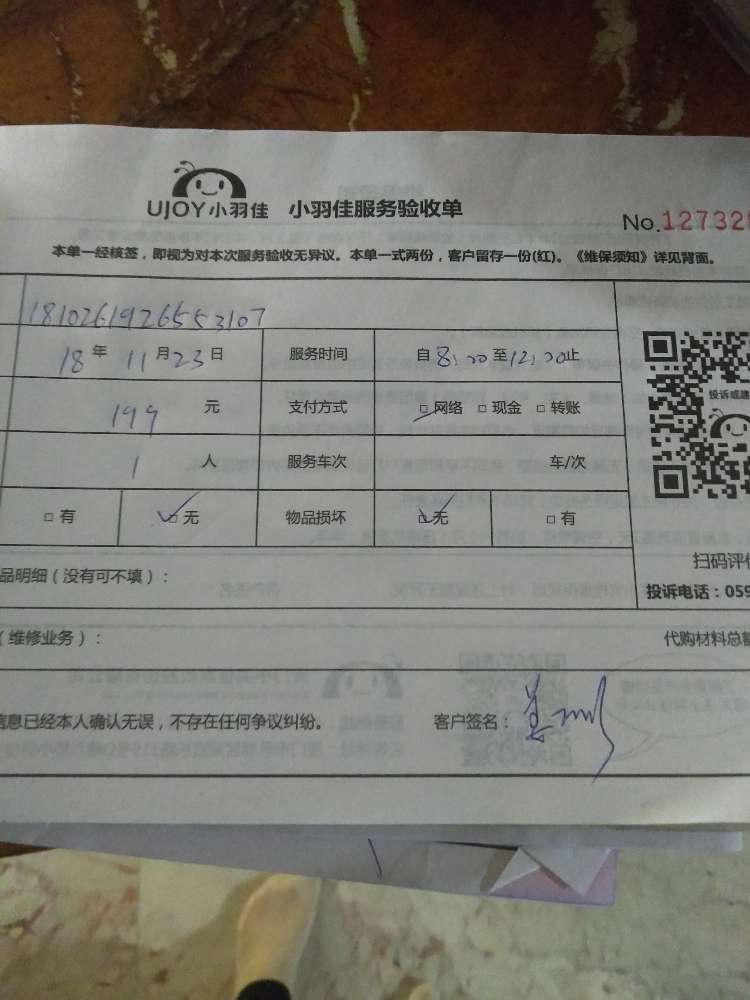 UJOY小羽佳 小羽佳服务验收单
No.12732
本单一经核签，即视为对本次服务验收无异议。本单一式两份，客户留存一份(红)。《维保须知》详见背面。
1810261926553107
18年 11月23日 服务时间 自8:00至12:00止
199 元 支付方式 □网络 □现金 □转账
1 人 服务车次 车/次
□有 □无 物品损坏 □无 □有
投诉或建
扫码评价
投诉电话：059
品明细（没有可不填）：
（维修业务）： 代购材料总额
信息已经本人确认无误，不存在任何争议纠纷。 客户签名：